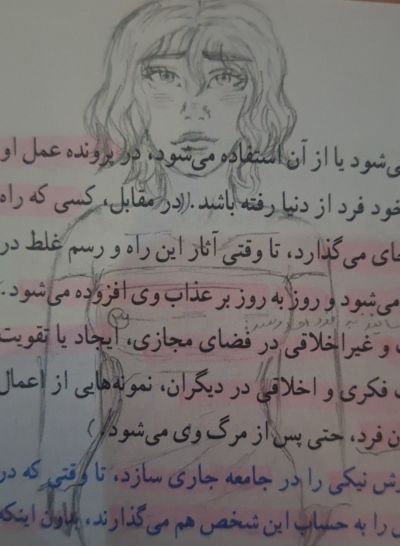 می‌شود یا از آن استفاده می‌شود، در پرونده عمل او
خود فرد از دنیا رفته باشد. در مقابل، کسی که راه
جای می‌گذارد، تا وقتی آثار این راه و رسم غلط در
می‌شود و روز به روز بر عذاب وی افزوده می‌شود.
و غیراخلاقی در فضای مجازی، ایجاد یا تقویت
فکری و اخلاقی در دیگران، نمونه‌هایی از اعمال
فرد، حتی پس از مرگ وی می‌شود
نیکی را در جامعه جاری سازد، تا وقتی که در
را به حساب این شخص هم می‌گذارند، بدون اینکه